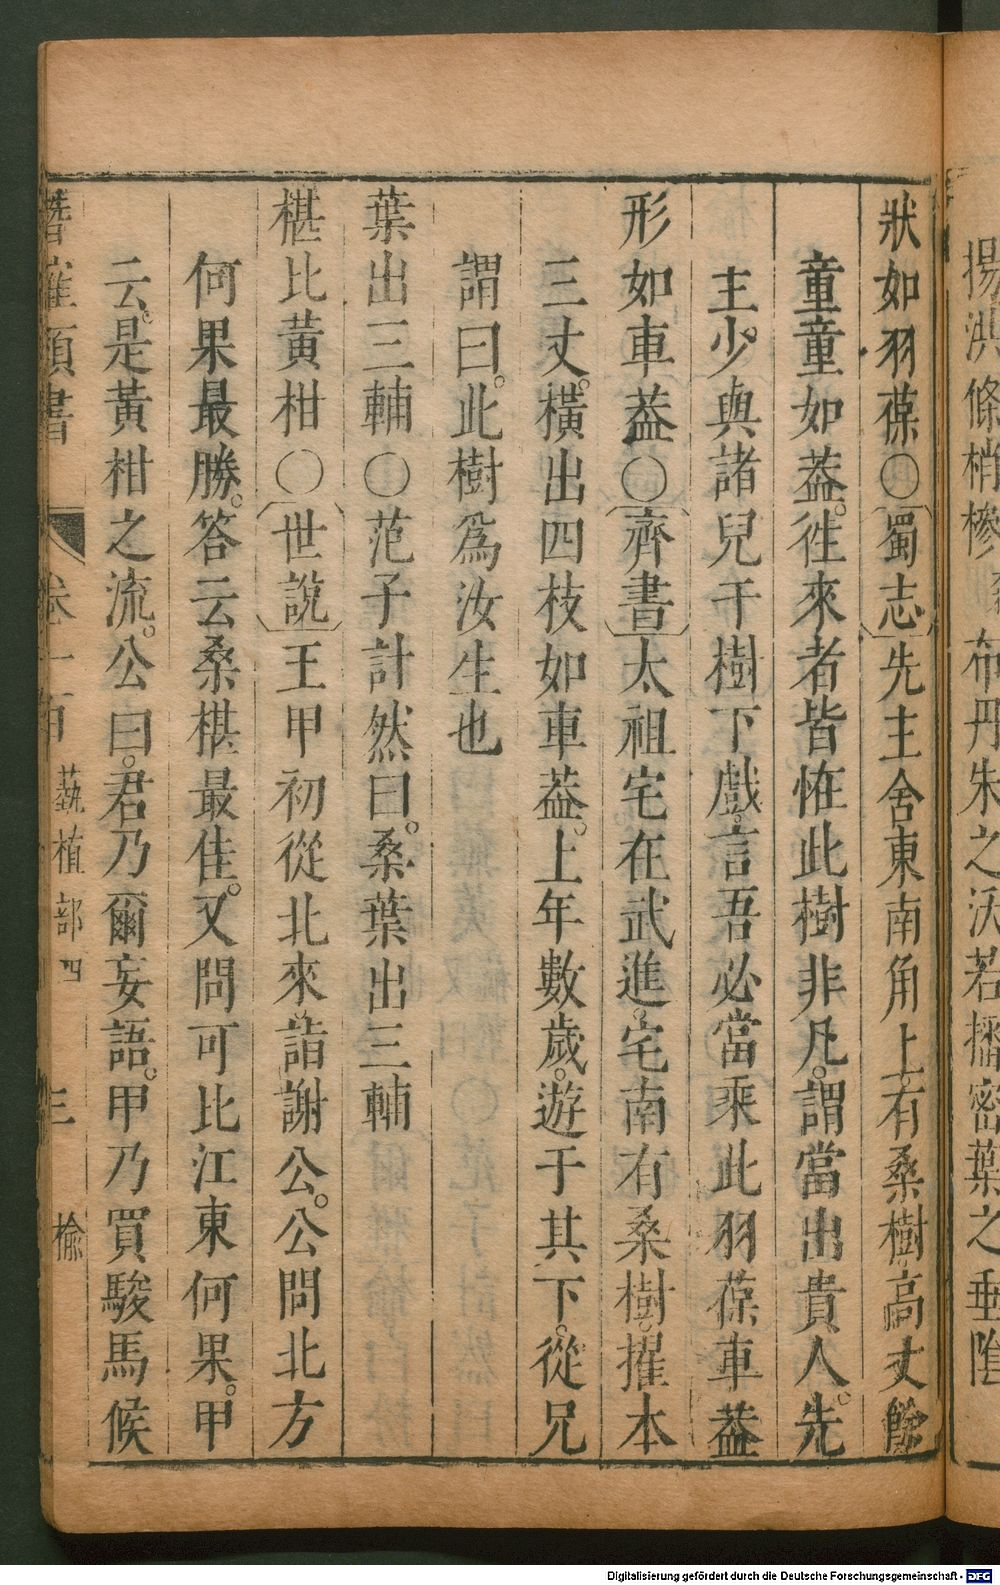 揚洪條梢槮
布丹朱之沃若播密葉之垂陰
狀如羽葆○〔蜀志〕先主舍東南角上。有桑樹。高丈餘
童童如葢。徃來者皆恠此樹非凡。謂當出貴人。先
主少。與諸兒于樹下戲。言吾必當乘此羽葆車葢
形如車葢○〔齊書〕太祖宅在武進。宅南有桑樹。擢本
三丈。橫出四枝如車葢。上年數歲。遊于其下。從兄
謂曰。此樹爲汝生也
葉出三輔○范子計然曰。桑葉出三輔
椹比黃柑○〔世說〕王甲初從北來。詣謝公。公問北方
何果最勝。答云桑椹最佳。又問可比江東何果。甲
云。是黃柑之流。公曰。君乃爾妄語。甲乃買駿馬候
潛確類書 卷一百 藝植部四 三 榆
Digitalisierung gefördert durch die Deutsche Forschungsgemeinschaft - DFG